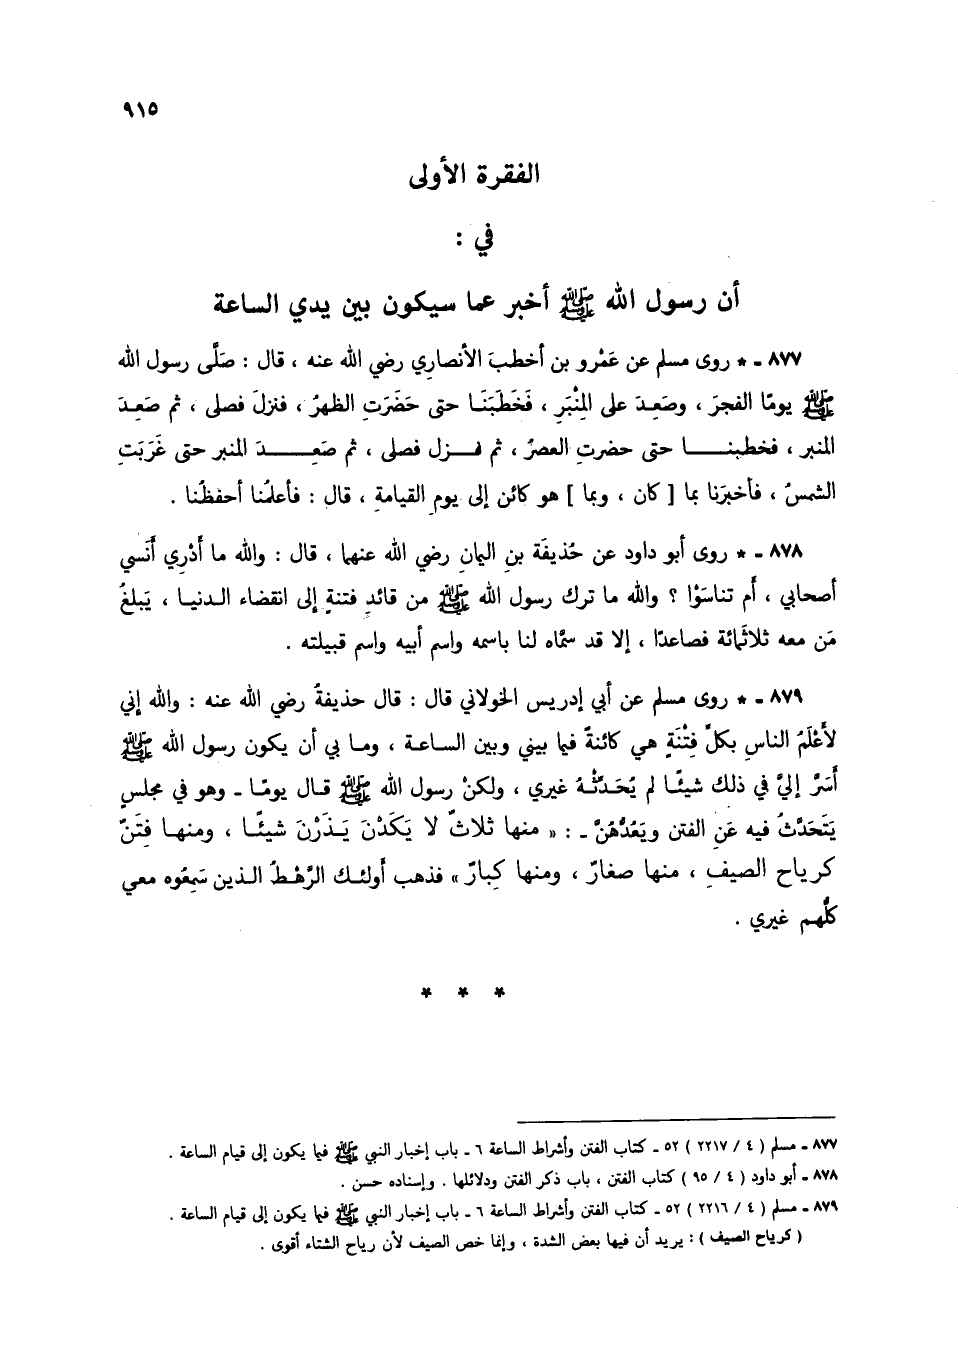 ٩١٥
الفقرة الأولى
في :
أن رسول الله ﷺ أخبر عما سيكون بين يدي الساعة
٨٧٧ ـ * روى مسلم عن عَمْرو بن أخطبَ الأنصاري رضي الله عنه ، قال : صَلَّى رسول الله
ﷺ يومًا الفجرَ ، وصَعِدَ على المِنْبَرِ ، فَخَطَبَنَا حتى حَضَرَتِ الظهرُ ، فنزلَ فصلى ، ثم صَعِدَ
المنبر ، فخطبنا حتى حضرتِ العصرُ ، ثم نزل فصلى ، ثم صَعِدَ المنبر حتى غَرَبَتِ
الشمسُ ، فأخبَرَنا بما [ كان ، وبما ] هو كائن إلى يوم القيامةِ ، قال : فأعلمُنا أحفظُنا .
٨٧٨ ـ * روى أبو داود عن حُذيفَة بنِ اليمانِ رضي الله عنهما ، قال : والله ما أَدْري أَنَسي
أصحابي ، أم تناسَوْا ؟ والله ما ترك رسول الله ﷺ من قائدِ فتنةٍ إلى انقضاء الدنيا ، يَبلغُ
مَن معه ثلاثَمائة فصاعدًا ، إلا قد سمَّاه لنا باسمه واسم أبيه واسم قبيلته .
٨٧٩ ـ * روى مسلم عن أبي إدريس الخولاني قال : قال حذيفةُ رضي الله عنه : والله إني
لأَعْلَمُ الناسِ بكلِّ فِتْنَةٍ هي كائنةٌ فيما بيني وبين الساعة ، وما بي أن يكون رسول الله ﷺ
أَسَرَّ إليَّ في ذلك شيئًا لم يُحَدِّثْهُ غيري ، ولكنْ رسول الله ﷺ قال يومًا ـ وهو في مجلسٍ
يَتَحَدَّثُ فيه عَنِ الفتن ويَعُدُّهُنَّ ـ : « منها ثلاثٌ لا يَكَدْنَ يَذَرْنَ شيئًا ، ومنها فِتَنٌ
كرياح الصيفِ ، منها صغارٌ ، ومنها كِبارٌ » فذهب أولئك الرَّهْطُ الذين سَمِعُوه معي
كلُّهم غيري .
* * *
٨٧٧ ـ مسلم ( ٤ / ٢٢١٧ ) ٥٢ ـ كتاب الفتن وأشراط الساعة ٦ ـ باب إخبار النبي ﷺ فيما يكون إلى قيام الساعة .
٨٧٨ ـ أبو داود ( ٤ / ٩٥ ) كتاب الفتن ، باب ذكر الفتن ودلائلها . وإسناده حسن .
٨٧٩ ـ مسلم ( ٤ / ٢٢١٦ ) ٥٢ ـ كتاب الفتن وأشراط الساعة ٦ ـ باب إخبار النبي ﷺ فيما يكون إلى قيام الساعة .
( كرياح الصيف ) : يريد أن فيها بعض الشدة ، وإنما خص الصيف لأن رياح الشتاء أقوى .